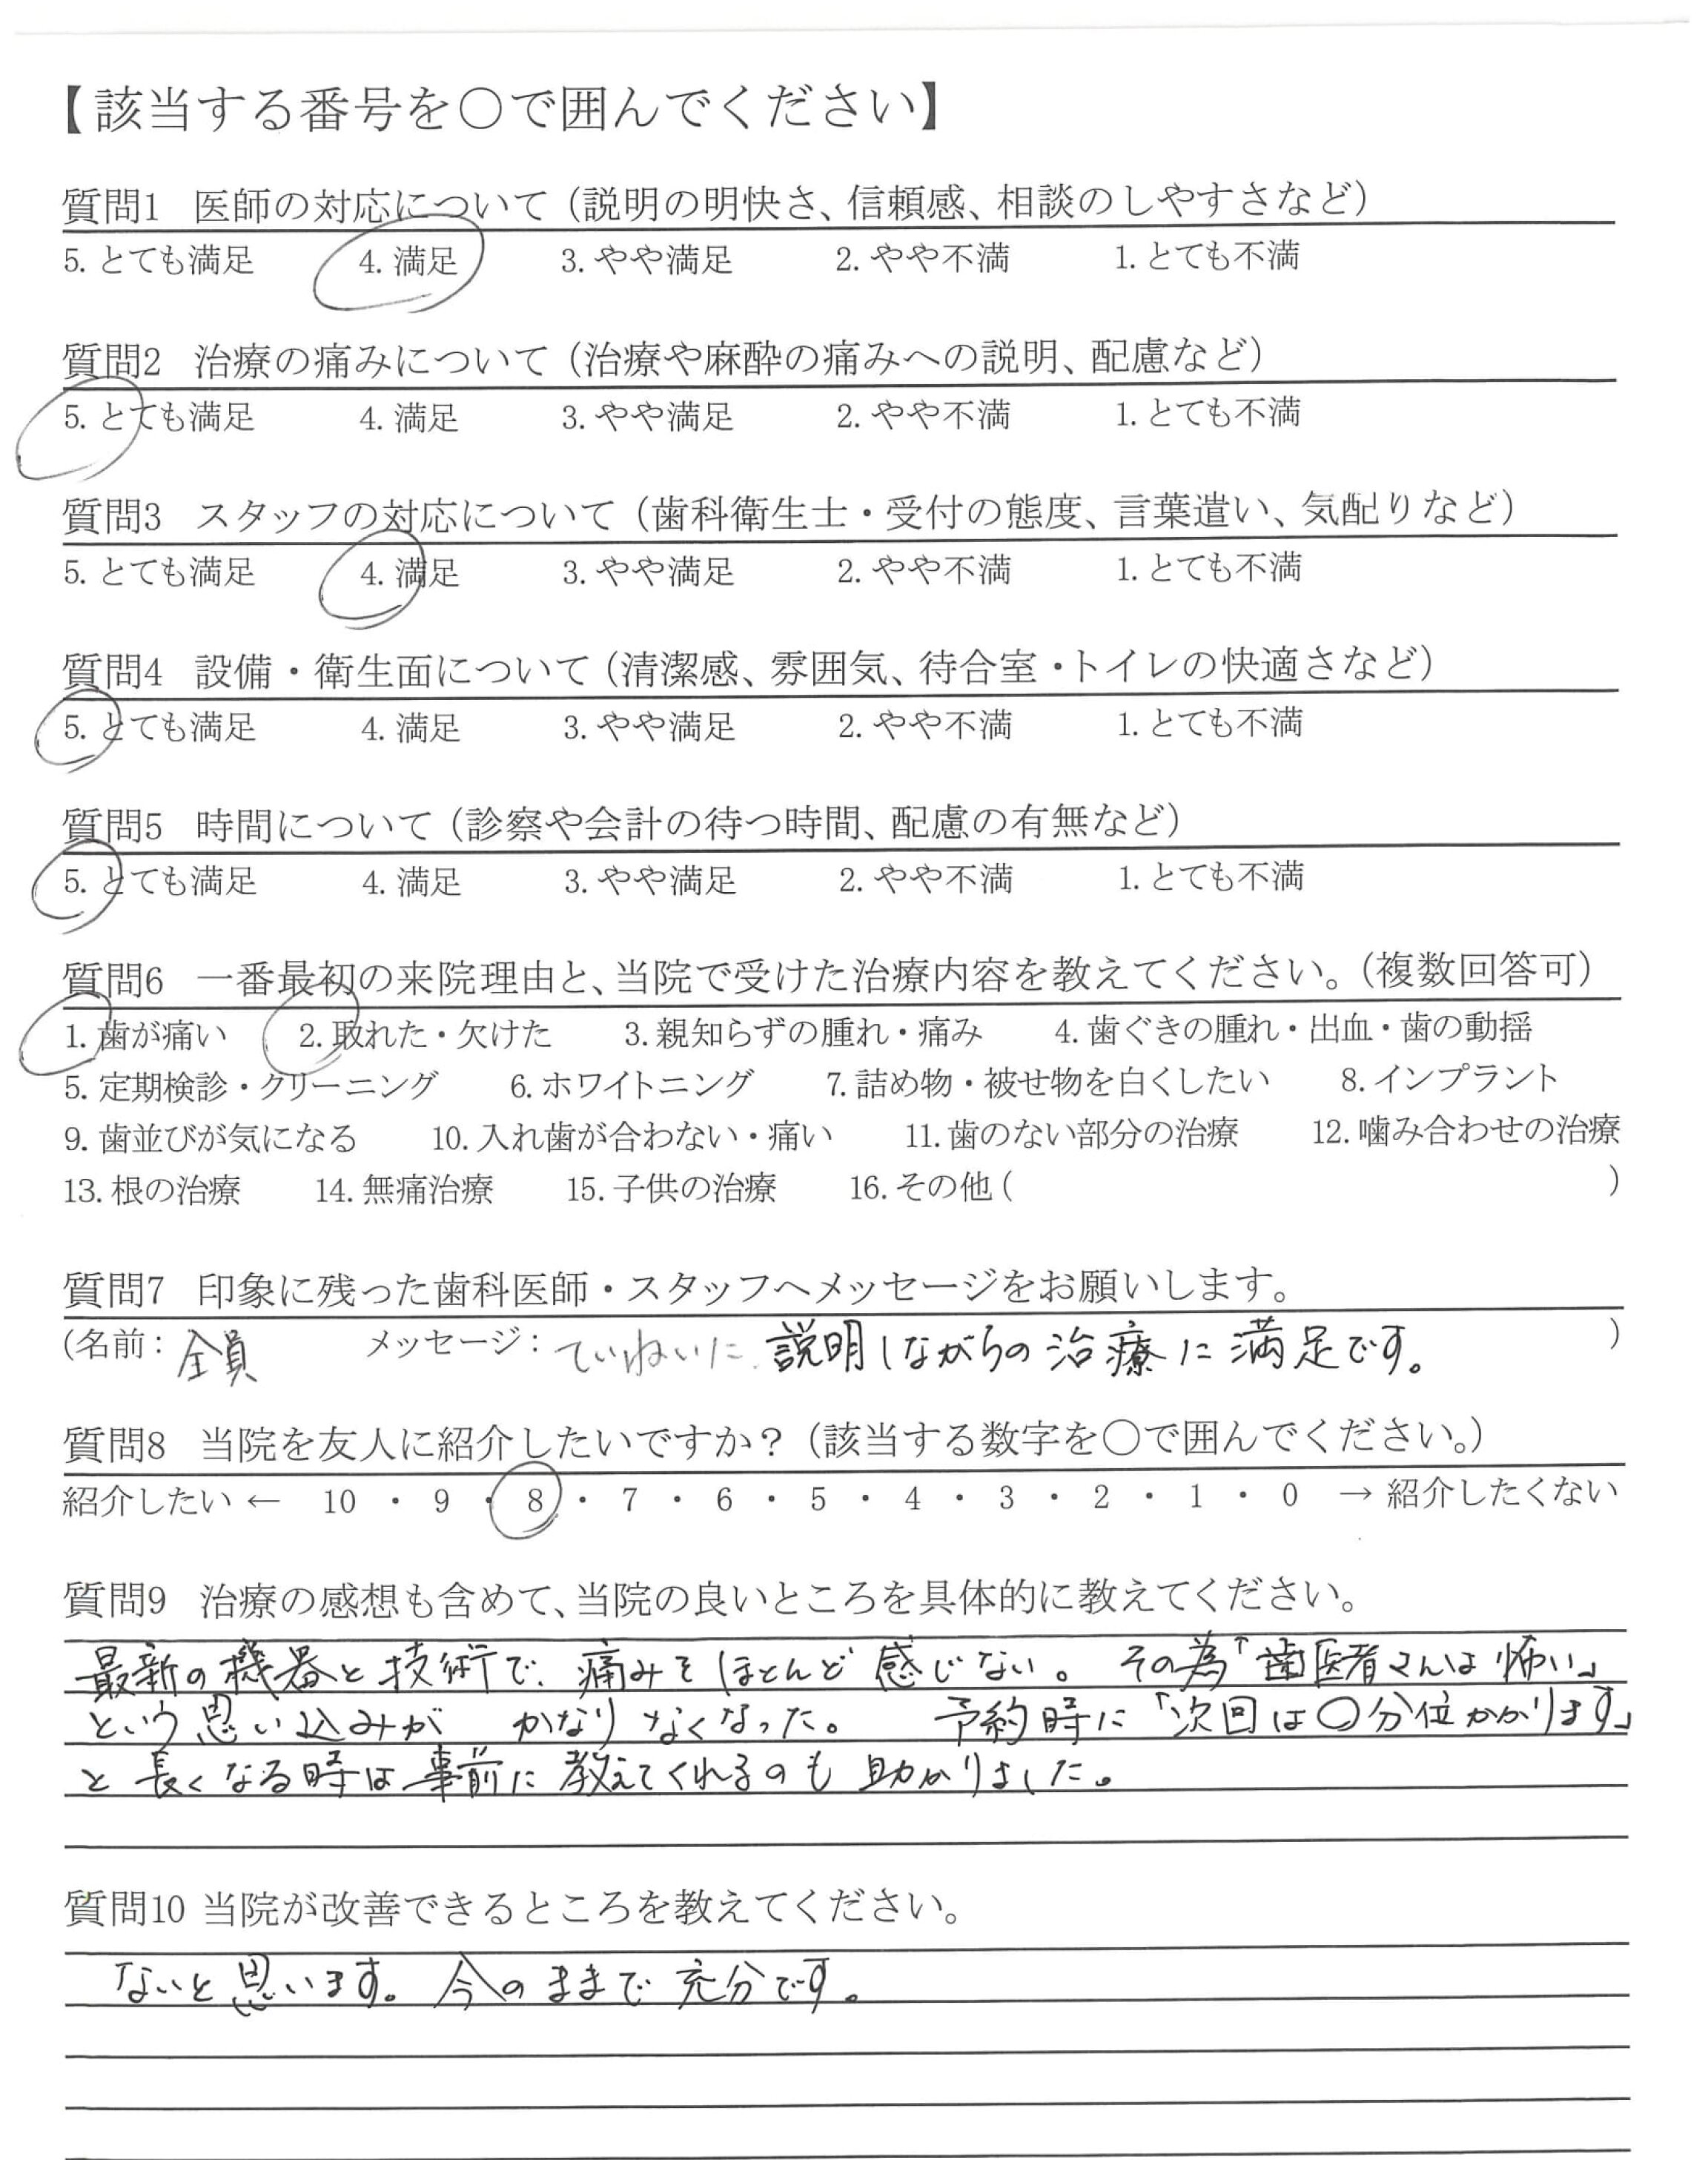 【該当する番号を○で囲んでください】
質問1 医師の対応について（説明の明快さ、信頼感、相談のしやすさなど）
5. とても満足 4. 満足 3. やや満足 2. やや不満 1. とても不満
質問2 治療の痛みについて（治療や麻酔の痛みへの説明、配慮など）
5. とても満足 4. 満足 3. やや満足 2. やや不満 1. とても不満
質問3 スタッフの対応について（歯科衛生士・受付の態度、言葉遣い、気配りなど）
5. とても満足 4. 満足 3. やや満足 2. やや不満 1. とても不満
質問4 設備・衛生面について（清潔感、雰囲気、待合室・トイレの快適さなど）
5. とても満足 4. 満足 3. やや満足 2. やや不満 1. とても不満
質問5 時間について（診察や会計の待つ時間、配慮の有無など）
5. とても満足 4. 満足 3. やや満足 2. やや不満 1. とても不満
質問6 一番最初の来院理由と、当院で受けた治療内容を教えてください。（複数回答可）
1. 歯が痛い 2. 取れた・欠けた 3. 親知らずの腫れ・痛み 4. 歯ぐきの腫れ・出血・歯の動揺
5. 定期検診・クリーニング 6. ホワイトニング 7. 詰め物・被せ物を白くしたい 8. インプラント
9. 歯並びが気になる 10. 入れ歯が合わない・痛い 11. 歯のない部分の治療 12. 噛み合わせの治療
13. 根の治療 14. 無痛治療 15. 子供の治療 16. その他（ ）
質問7 印象に残った歯科医師・スタッフへメッセージをお願いします。
（名前：全員 メッセージ：ていねいに説明しながらの治療に満足です。）
質問8 当院を友人に紹介したいですか？（該当する数字を○で囲んでください。）
紹介したい ← 10 ・ 9 ・ 8 ・ 7 ・ 6 ・ 5 ・ 4 ・ 3 ・ 2 ・ 1 ・ 0 → 紹介したくない
質問9 治療の感想も含めて、当院の良いところを具体的に教えてください。
最新の機器と技術で、痛みをほとんど感じない。その為「歯医者さんは怖い」
という思い込みが かなりなくなった。 予約時に「次回は○分位かかります」
と長くなる時は事前に教えてくれるのも助かりました。
質問10 当院が改善できるところを教えてください。
ないと思います。今のままで充分です。